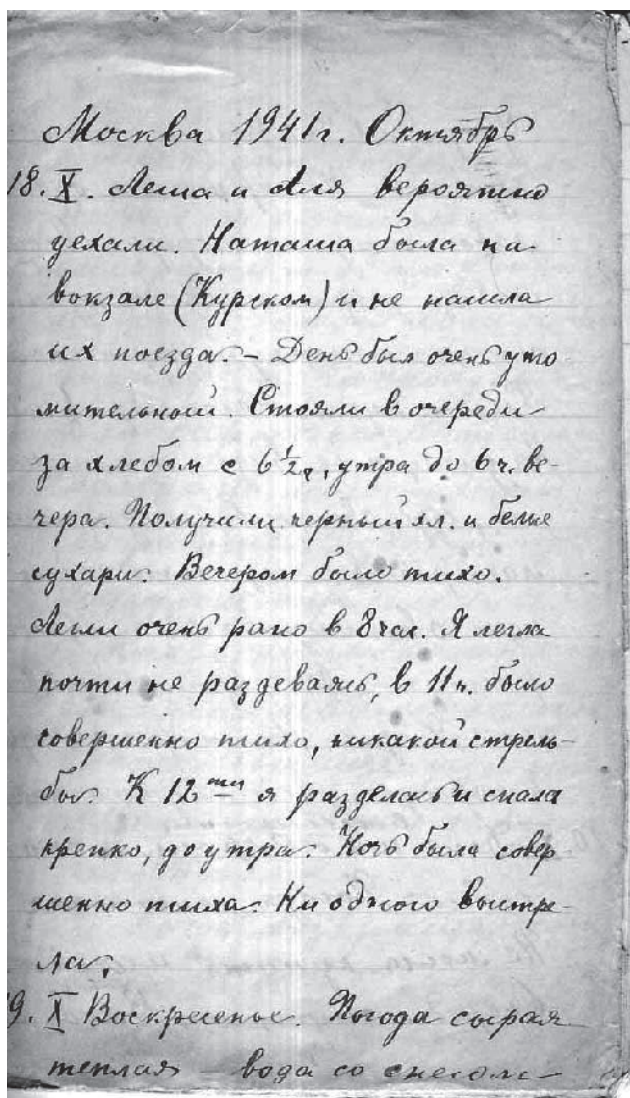 Москва 1941 г. Октябрь
18. X. Леша и Аля вероятно
уехали. Наташа была на
вокзале (Курском) и не нашла
их поезда. – День был очень уто-
мительный. Стояли в очереди
за хлебом с 6 1/2 ч. утра до 6 ч. ве-
чера. Получили черный хл. и белые
сухари. Вечером было тихо.
Легли очень рано в 8 час. Я легла
почти не раздеваясь, в 11 ч. было
совершенно тихо, никакой стрель-
бы. К 12 ти я разделась и спала
крепко, до утра. Ночь была совер
шенно тиха. Ни одного выстре-
ла.
9. X Воскресенье. Погода сырая
теплая – вода со снегом